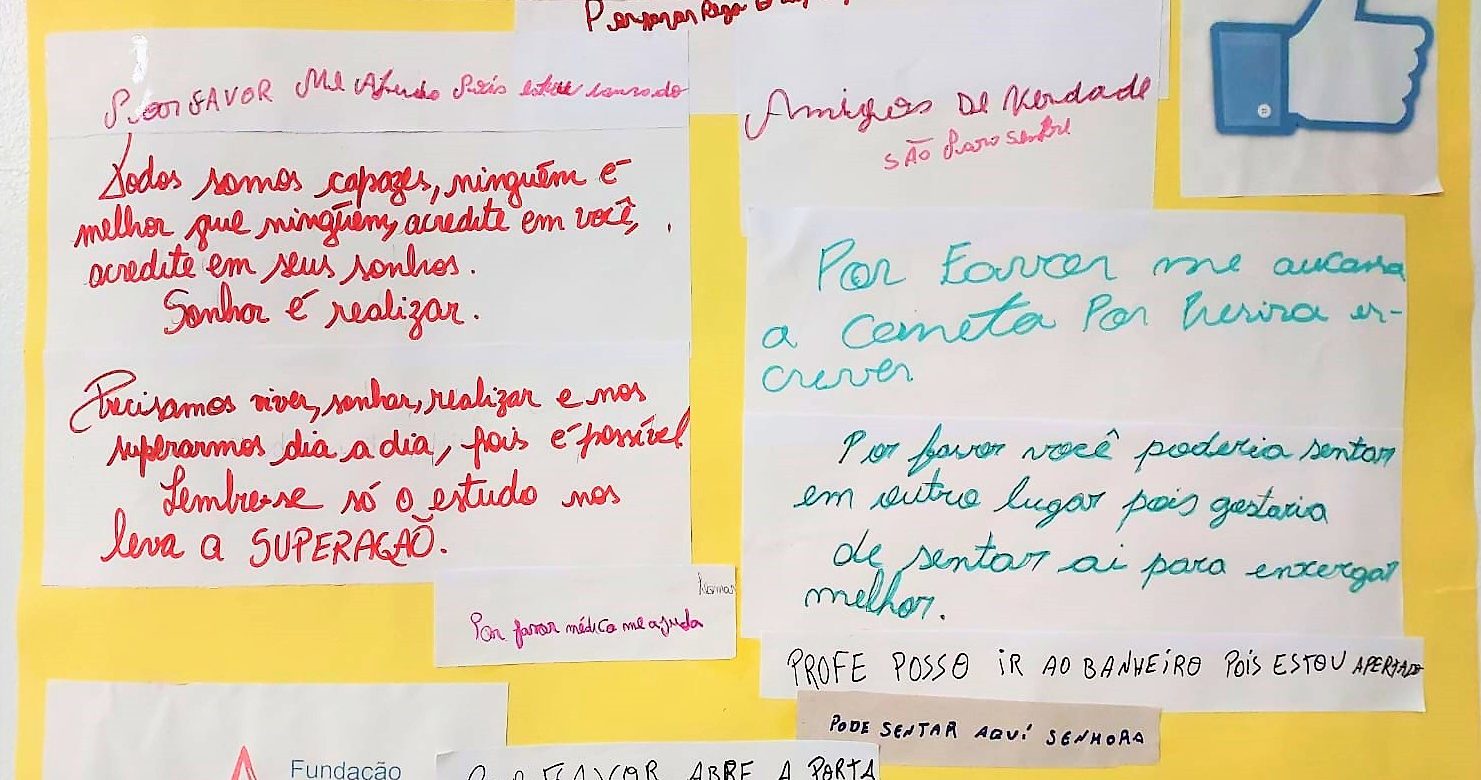 Por FAVOR Me Ajuda Pois estou cansado
Todos somos capazes, ninguém é
melhor que ninguém, acredite em você,
acredite em seus sonhos.
Sonhar é realizar.
Precisamos viver, sonhar, realizar e nos
superarmos dia a dia, pois é possível
Lembre-se só o estudo nos
leva a SUPERAÇÃO.
Por favor médico me ajuda
Fundação
Amigos De Verdade
SÃO Para sempre
Por Favor me
a caneta Por es-
crever
Por favor você poderia sentar
em outro lugar pois gostaria
de sentar ai para enxergar
melhor.
PROFE POSSO iR AO BANHEiRO POiS ESTOU APERTADO
PODE SENTAR AQUí SENHORA
ABRE A PORTA